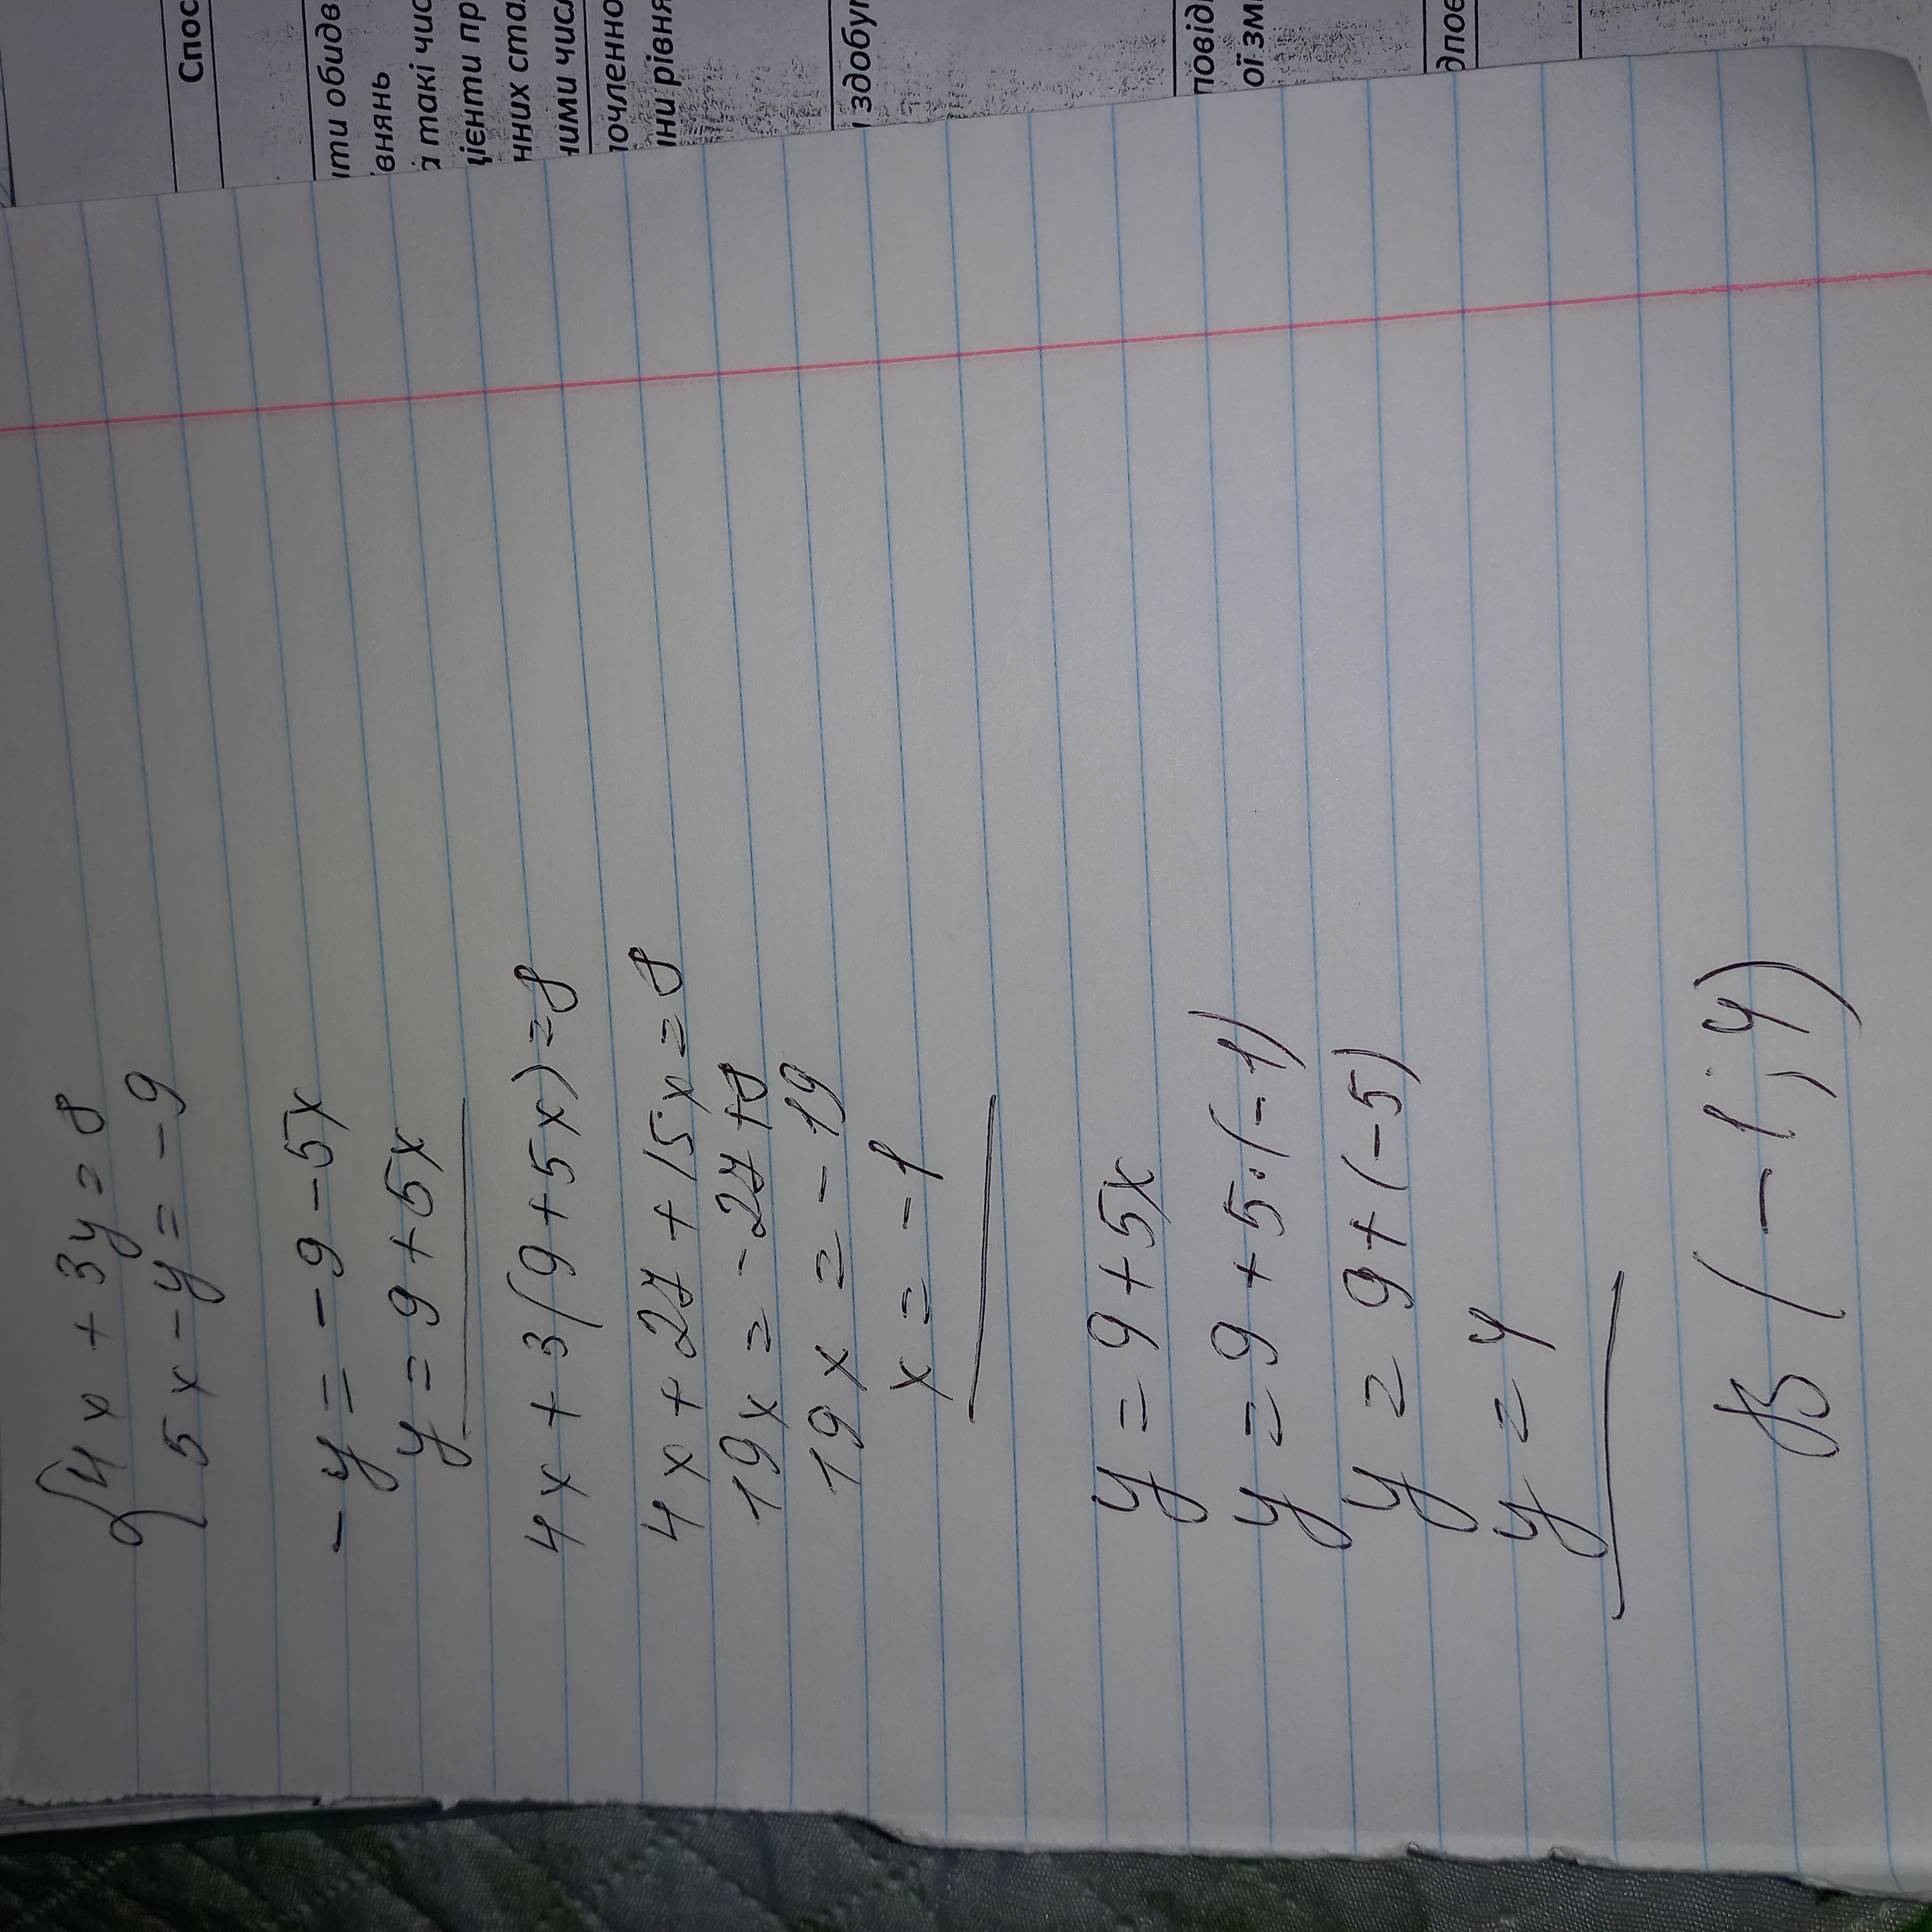 Спос
ти обидв
внянь
такі чис
цієнти пр
нних ста
ними числ
ючленно
ни рівня
здобу
повід
ої зм
дпов
{4x + 3y = 8
5x - y = -9
-y = -9 - 5x
y = 9 + 5x
4x + 3(9 + 5x) = 8
4x + 27 + 15x = 8
19x = -27 + 8
19x = -19
x = -1
y = 9 + 5x
y = 9 + 5·(-1)
y = 9 + (-5)
y = 4
(-1; 4)